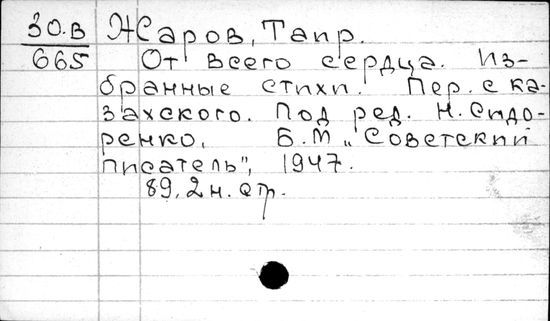 30.В Жаров, Таир.
665 От всего сердца. Из-
бранные стихи. Пер. с ка-
захского. Под ред. Н. Сидо-
ренко. Б.М „Советский
писатель", 1947.
89, 2 н. стр.